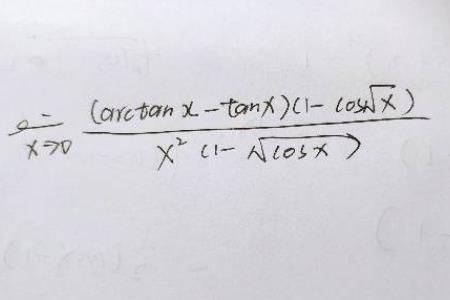 lim x→0 (arctan x - tan x)(1 - cos√x) / x² (1 - √cos x)